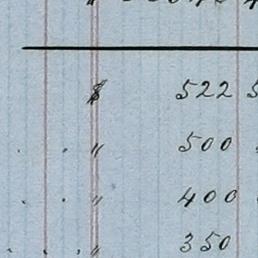 $ 522
" 500
" 400
" 350